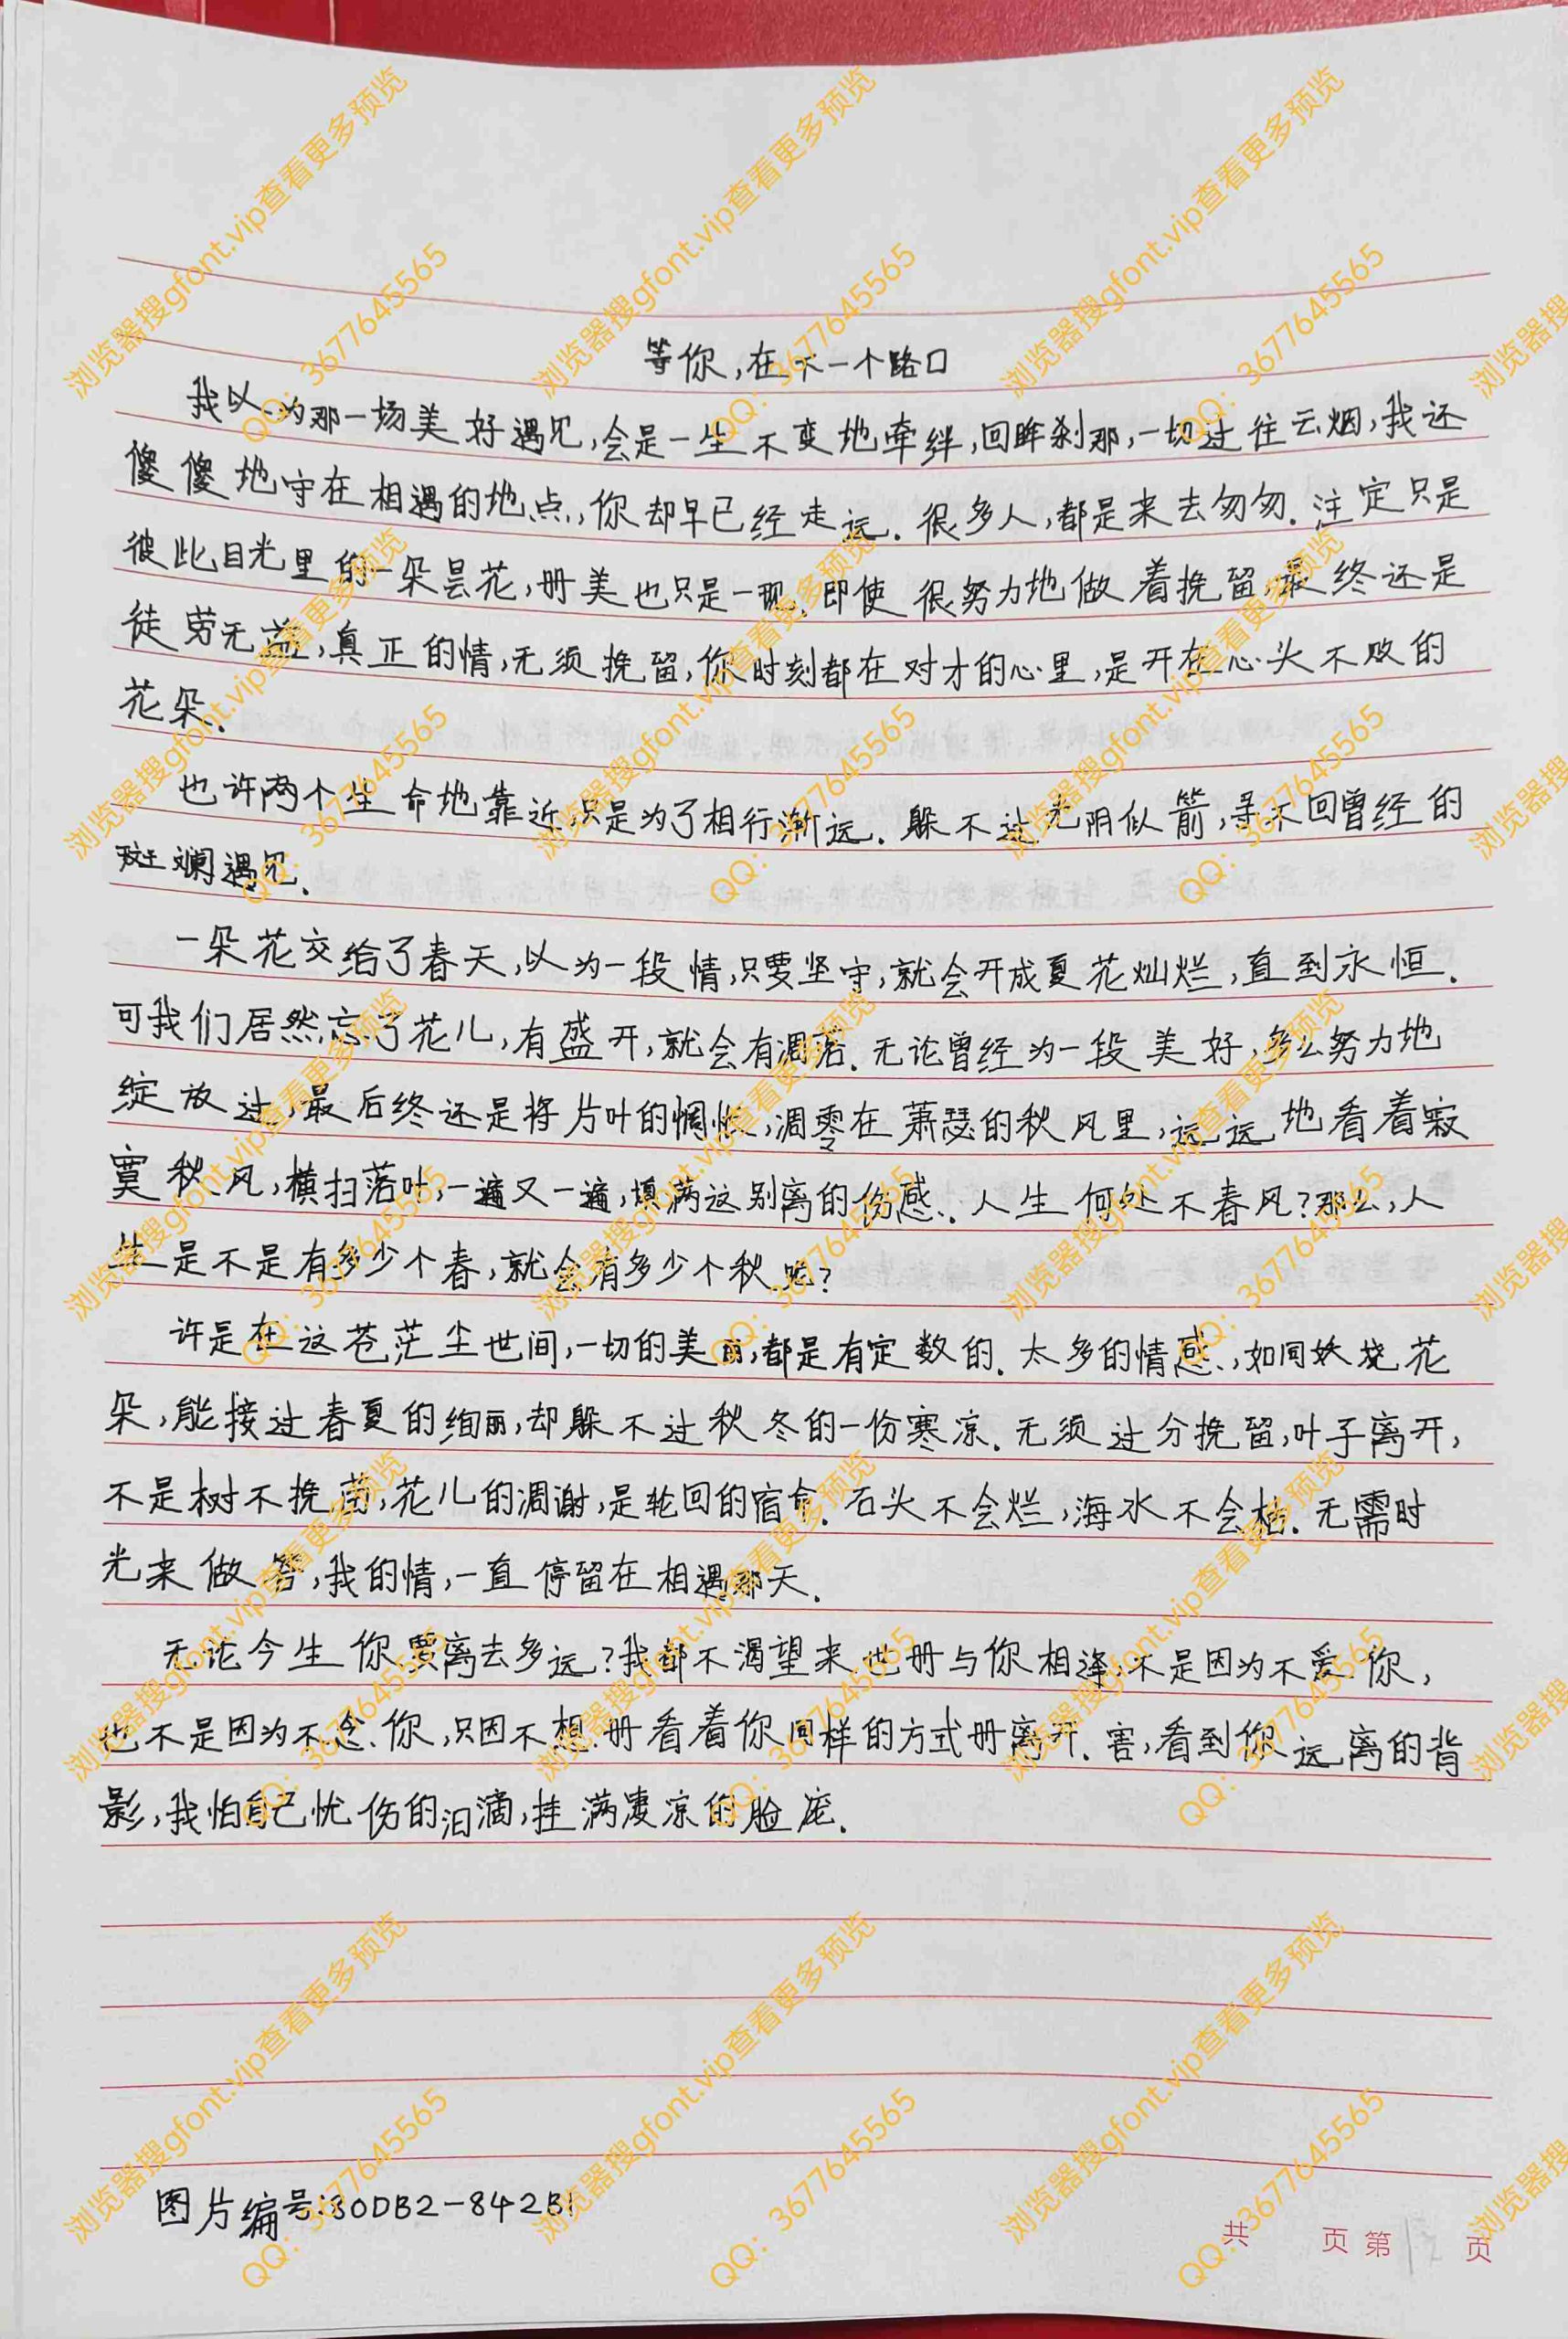 等你,在下一个路口
我以为那一场美好遇见,会是一生不变地牵绊,回眸刹那,一切过往云烟,我还
傻傻地守在相遇的地点,你却早已经走远.很多人,都是来去匆匆.注定只是
彼此目光里的一朵昙花,册美也只是一现.即使很努力地做着挽留,最终还是
徒劳无益,真正的情,无须挽留,你时刻都在对才的心里,是开在心头不败的
花朵.
也许两个生命地靠近,只是为了相行渐远.躲不过光阴似箭,寻不回曾经的
斑斓遇见.
一朵花交给了春天,以为一段情,只要坚守,就会开成夏花灿烂,直到永恒.
可我们居然忘了花儿,有盛开,就会有凋落.无论曾经为一段美好,多么努力地
绽放过,最后终还是将片叶的惆怅,凋零在萧瑟的秋风里,远远地看着寂
寞秋风,横扫落叶,一遍又一遍,填满这别离的伤感.人生何处不春风?那么,人
生是不是有多少个春,就会有多少个秋呢?
许是在这苍茫尘世间,一切的美丽,都是有定数的.太多的情感,如同妖娆花
朵,能接过春夏的绚丽,却躲不过秋冬的一份寒凉.无须过分挽留,叶子离开,
不是树不挽留,花儿的凋谢,是轮回的宿命.石头不会烂,海水不会枯.无需时
光来做答,我的情,一直停留在相遇那天.
无论今生你要离去多远?我都不渴望来世册与你相逢,不是因为不爱你,
也不是因为不念你,只因不想册看着你同样的方式册离开.害,看到你远离的背
影,我怕自己忧伤的泪滴,挂满凄凉的脸庞.
图片编号:30DB2-842B1
共 页 第 页
浏览器搜gfont.vip查看更多预览
QQ: 3677645565